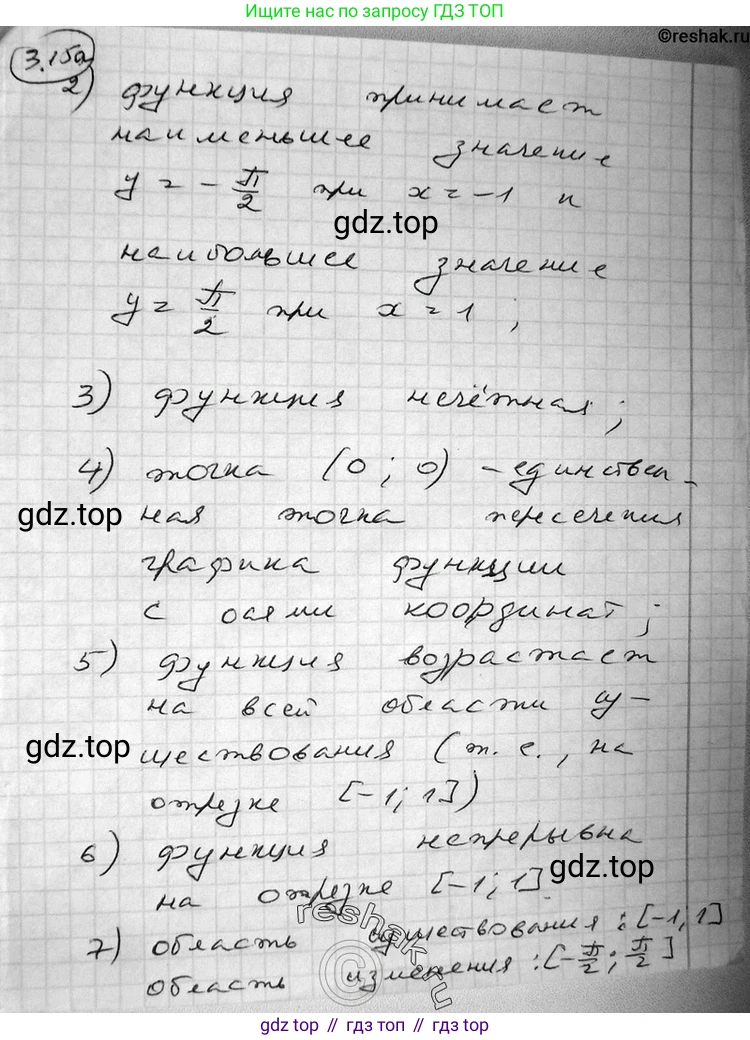 Ищите нас по запросу ГДЗ ТОП
©reshak.ru
3.15а
2) функция принимает
наименьшее значение
y = - π/2 при x = -1 и
gdz.top
наибольшее значение
y = π/2 при x = 1 ;
3) функция нечётная;
4) точка (0 ; 0) - единствен-
gdz.top
ная точка пересечения
графика функции
с осями координат;
5) функция возрастает
на всей области су-
gdz.top
ществования (т. е., на
отрезке [-1; 1])
6) функция непрерывна
gdz.top
на отрезке [-1; 1]
reshak.ru
©
7) область существования : [-1; 1]
область изменения : [-π/2 ; π/2]
gdz.top // гдз.топ // gdz.top